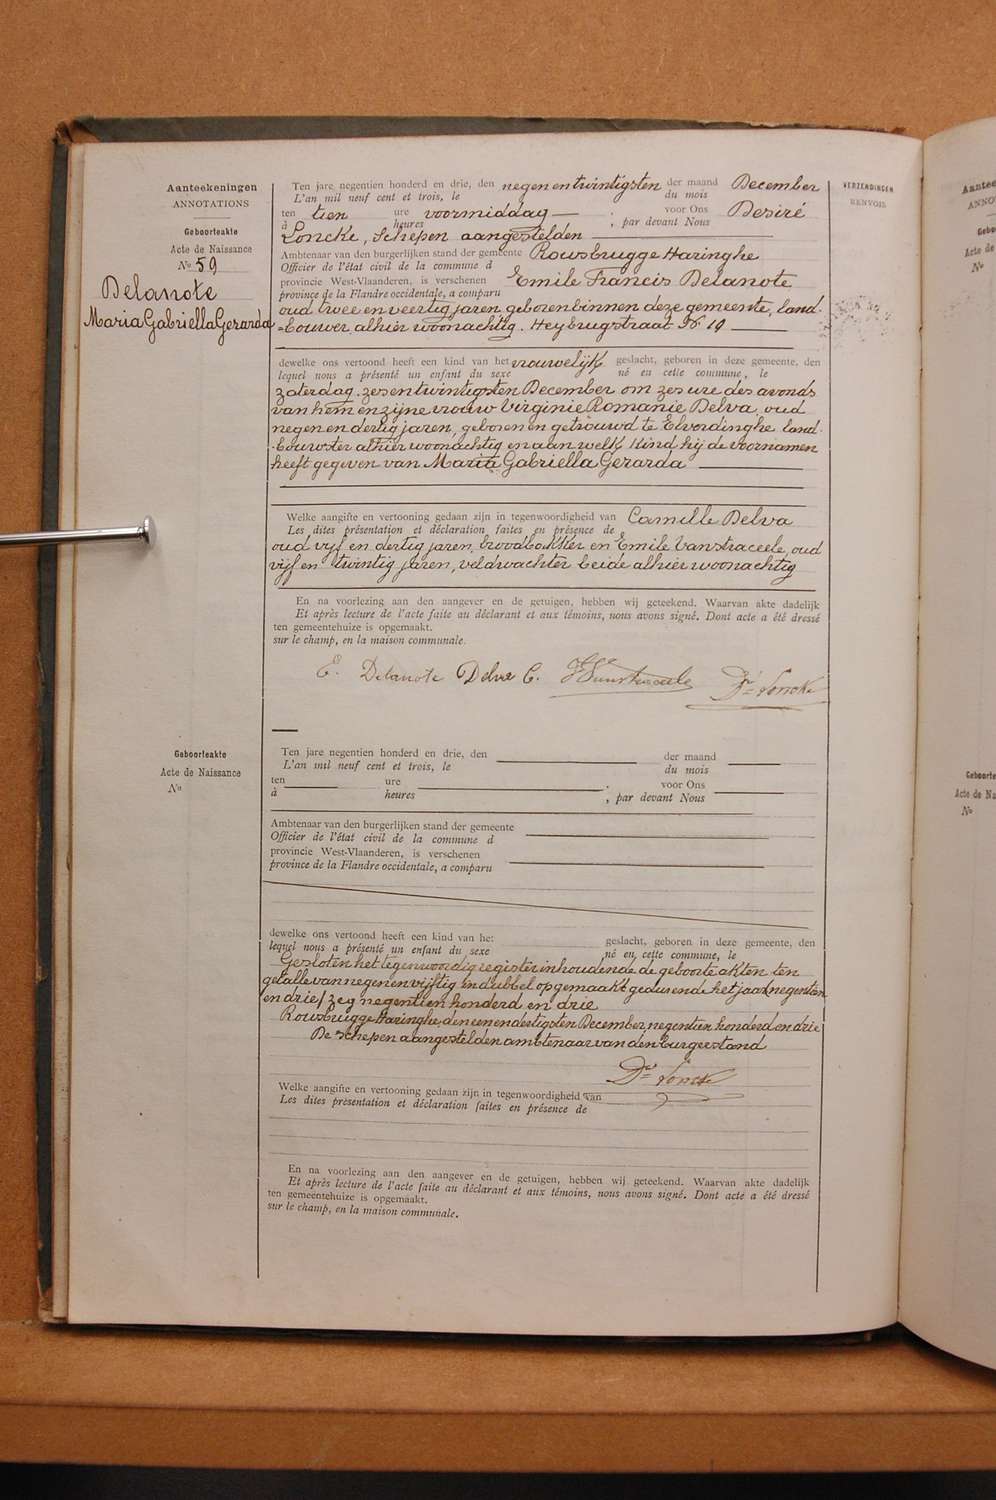 Aanteekeningen
ANNOTATIONS
Geboorteakte
Acte de Naissance
No 59
Delanote
Maria Gabriella Gerarda
Ten jare negentien honderd en drie, den negen en twintigsten der maand December
L'an mil neuf cent et trois, le du mois
ten tien ure voormiddag — , voor Ons Desiré
à heures , par devant Nous
Loncke, Schepen aangestelden
Ambtenaar van den burgerlijken stand der gemeente Rousbrugge Haringhe
Officier de l'état civil de la commune d
provincie West-Vlaanderen, is verschenen Emile Francis Delanote
province de la Flandre occidentale, a comparu
oud twee en veertig jaren geboren binnen deze gemeente, land-
-bouwer, alhier woonachtig. Heybrugstraat No 19
dewelke ons vertoond heeft een kind van het vrouwelijk geslacht, geboren in deze gemeente, den
lequel nous a présenté un enfant du sexe né en cette commune, le
zaterdag zes en twintigsten December om zes ure des avonds
van hem en zijne vrouw Virginie Romanie Delva, oud
negen en dertig jaren, geboren en getrouwd te Elverdinghe land-
-bouwster alhier woonachtig en aan welk Kind hij de voornamen
heeft gegeven van Maria Gabriella Gerarda
Welke aangifte en vertooning gedaan zijn in tegenwoordigheid van Camille Delva
Les dites présentation et déclaration faites en présence de
oud vijf en dertig jaren, broodbakker en Emile Vanstraceele, oud
vijf en twintig jaren, veldwachter beide alhier woonachtig
En na voorlezing aan den aangever en de getuigen, hebben wij geteekend. Waarvan akte dadelijk
Et après lecture de l'acte faite au déclarant et aux témoins, nous avons signé. Dont acte a été dressé
ten gemeentehuize is opgemaakt.
sur le champ, en la maison communale.
E. Delanote Delva C. Vanstraceele Dré Loncke
VERZENDINGEN
RENVOIS
Geboorteakte
Acte de Naissance
No
Ten jare negentien honderd en drie, den der maand
L'an mil neuf cent et trois, le du mois
ten ure , voor Ons
à heures , par devant Nous
Ambtenaar van den burgerlijken stand der gemeente
Officier de l'état civil de la commune d
provincie West-Vlaanderen, is verschenen
province de la Flandre occidentale, a comparu
dewelke ons vertoond heeft een kind van het geslacht, geboren in deze gemeente, den
lequel nous a présenté un enfant du sexe né en cette commune, le
Gesloten het tegenwoordig register inhoudende de geboorte akten ten
getalle van negen en vijftig in dubbel opgemaakt gedurende het jaar (negentien
en drie) zeg negentien honderd en drie
Rousbrugge Haringhe, den een en dertigsten December, negentien honderd en drie
De Schepen aangestelden ambtenaar van den burgerstand
Dré Loncke
Welke aangifte en vertooning gedaan zijn in tegenwoordigheid van
Les dites présentation et déclaration faites en présence de
En na voorlezing aan den aangever en de getuigen, hebben wij geteekend. Waarvan akte dadelijk
Et après lecture de l'acte faite au déclarant et aux témoins, nous avons signé. Dont acte a été dressé
ten gemeentehuize is opgemaakt.
sur le champ, en la maison communale.